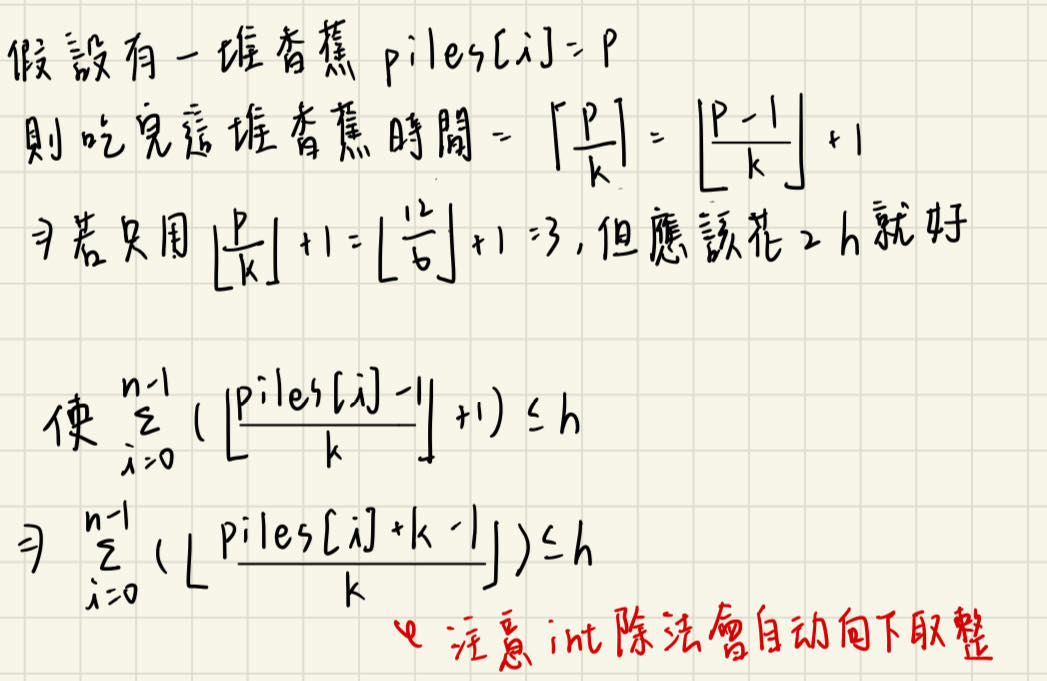 假設有一堆香蕉 piles[i] = p
則吃完這堆香蕉時間 = ⌈p/k⌉ = ⌊(p-1)/k⌋ + 1
⇒ 若只用 ⌊p/k⌋ + 1 = ⌊12/6⌋ + 1 = 3, 但應該花 2 h 就好
使 ∑_{i=0}^{n-1} (⌊(piles[i] - 1)/k⌋ + 1) ≤ h
⇒ ∑_{i=0}^{n-1} (⌊(piles[i] + k - 1)/k⌋) ≤ h
注意 int 除法會自动向下取整